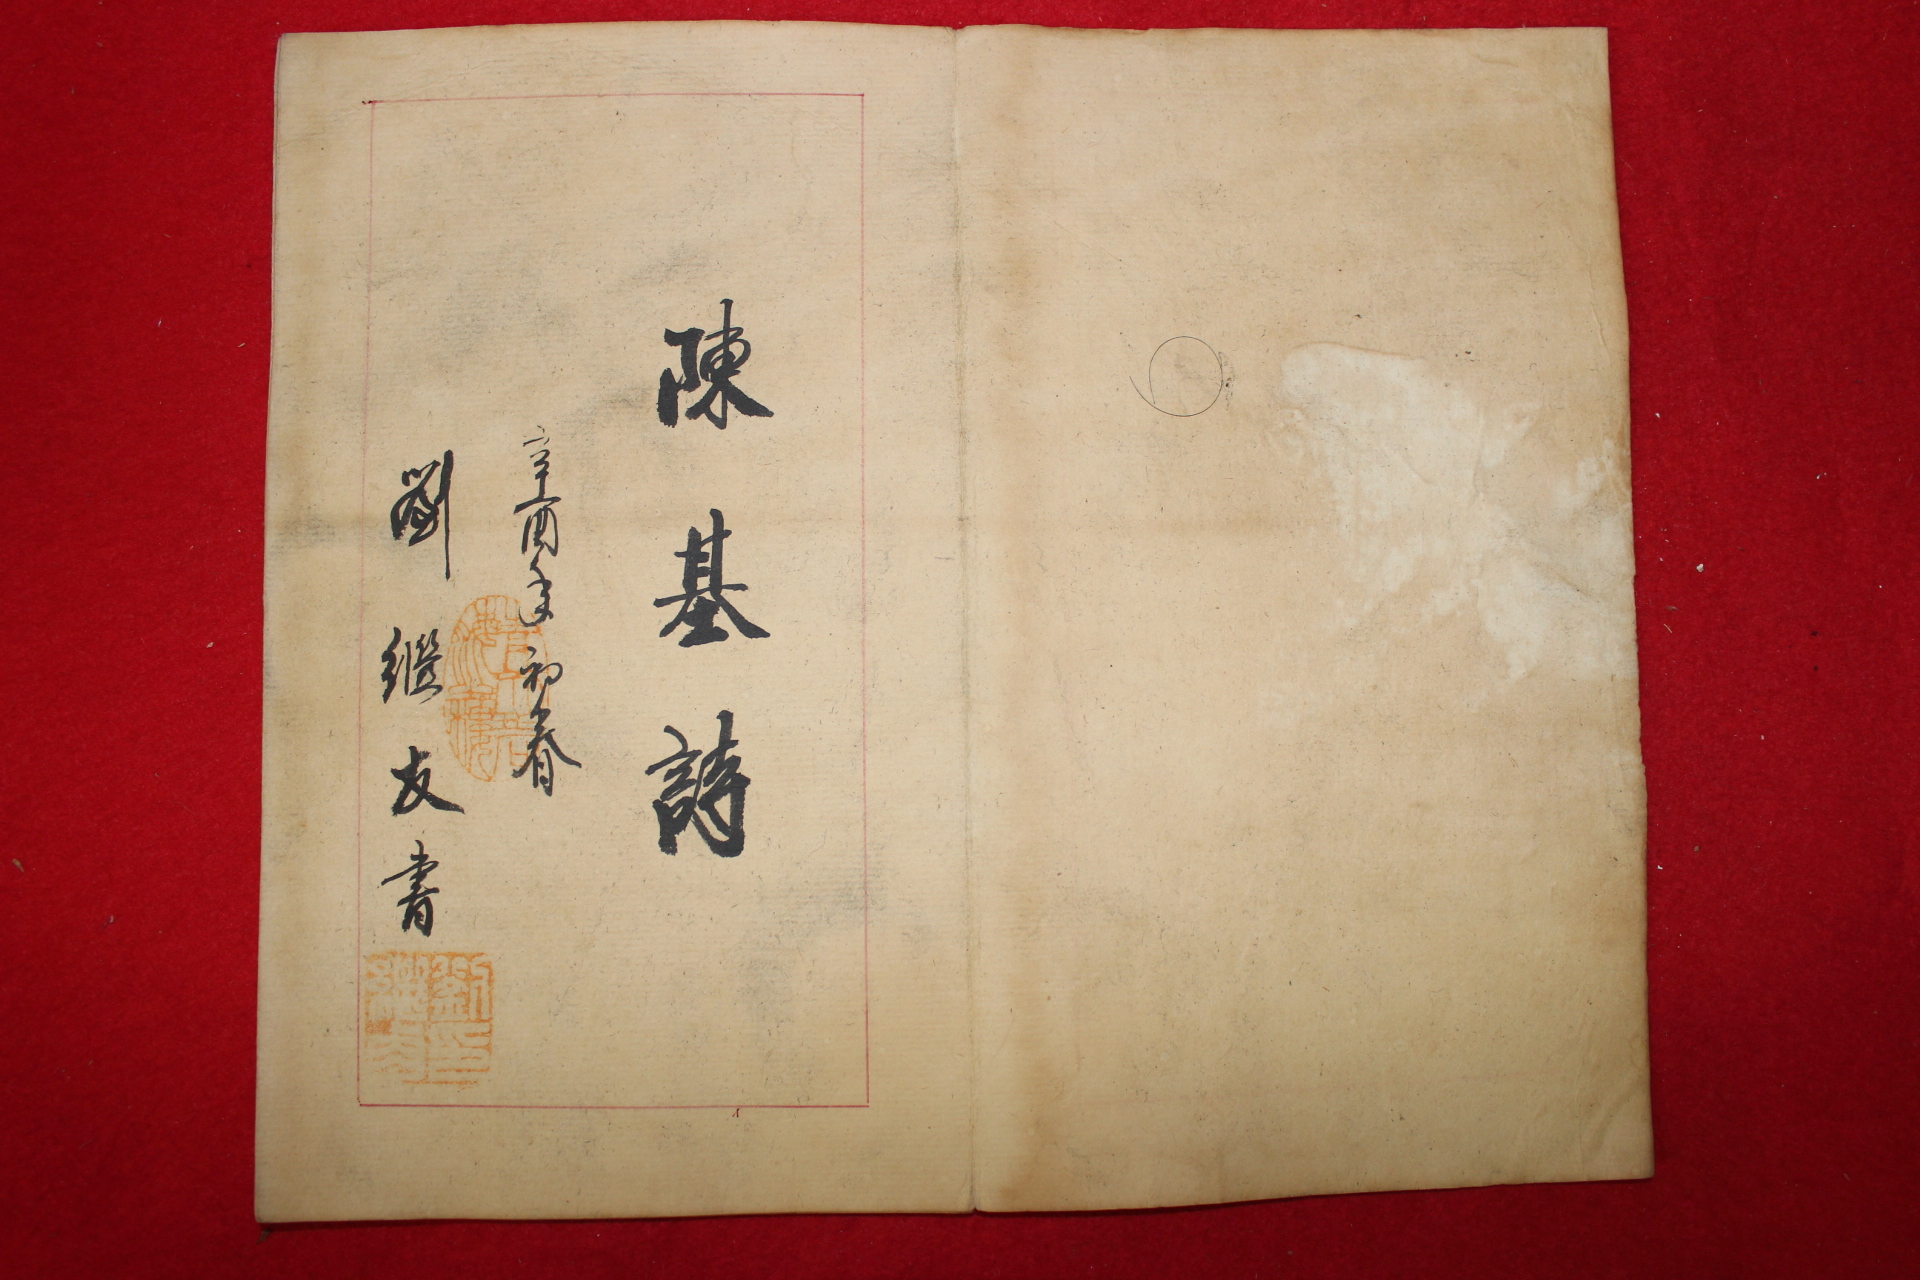 陳基詩
辛酉年初春
劉繼友書